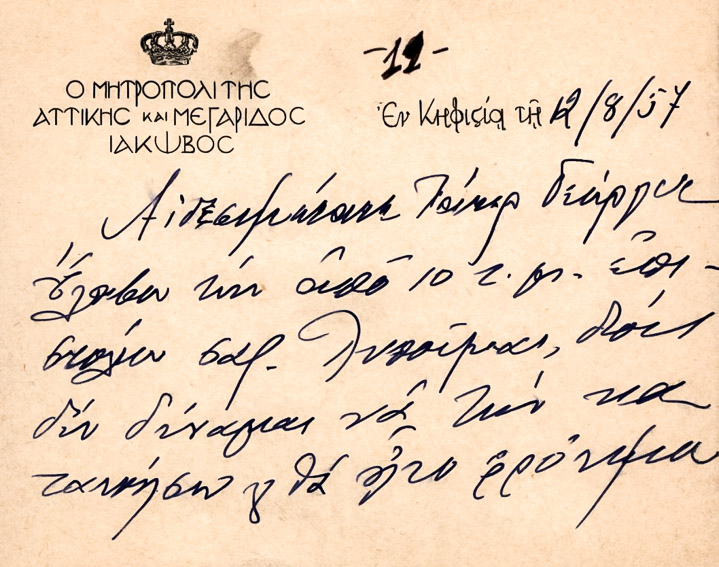 -12-
Ο ΜΗΤΡΟΠΟΛΙΤΗΣ
ΑΤΤΙΚΗΣ ΚΑΙ ΜΕΓΑΡΙΔΟΣ
ΙΑΚΩΒΟΣ
Ἐν Κηφισίᾳ τῇ 12/8/57
Αἰδεσιμώτατε Πάτερ Γεώργιε
Ἔλαβον τὴν ἀπὸ 10 τ. μ. ἐπι-
στολήν σας. Λυποῦμαι, διότι
δὲν δύναμαι νὰ τὴν κα
θὰ ἦτο φρόνημα